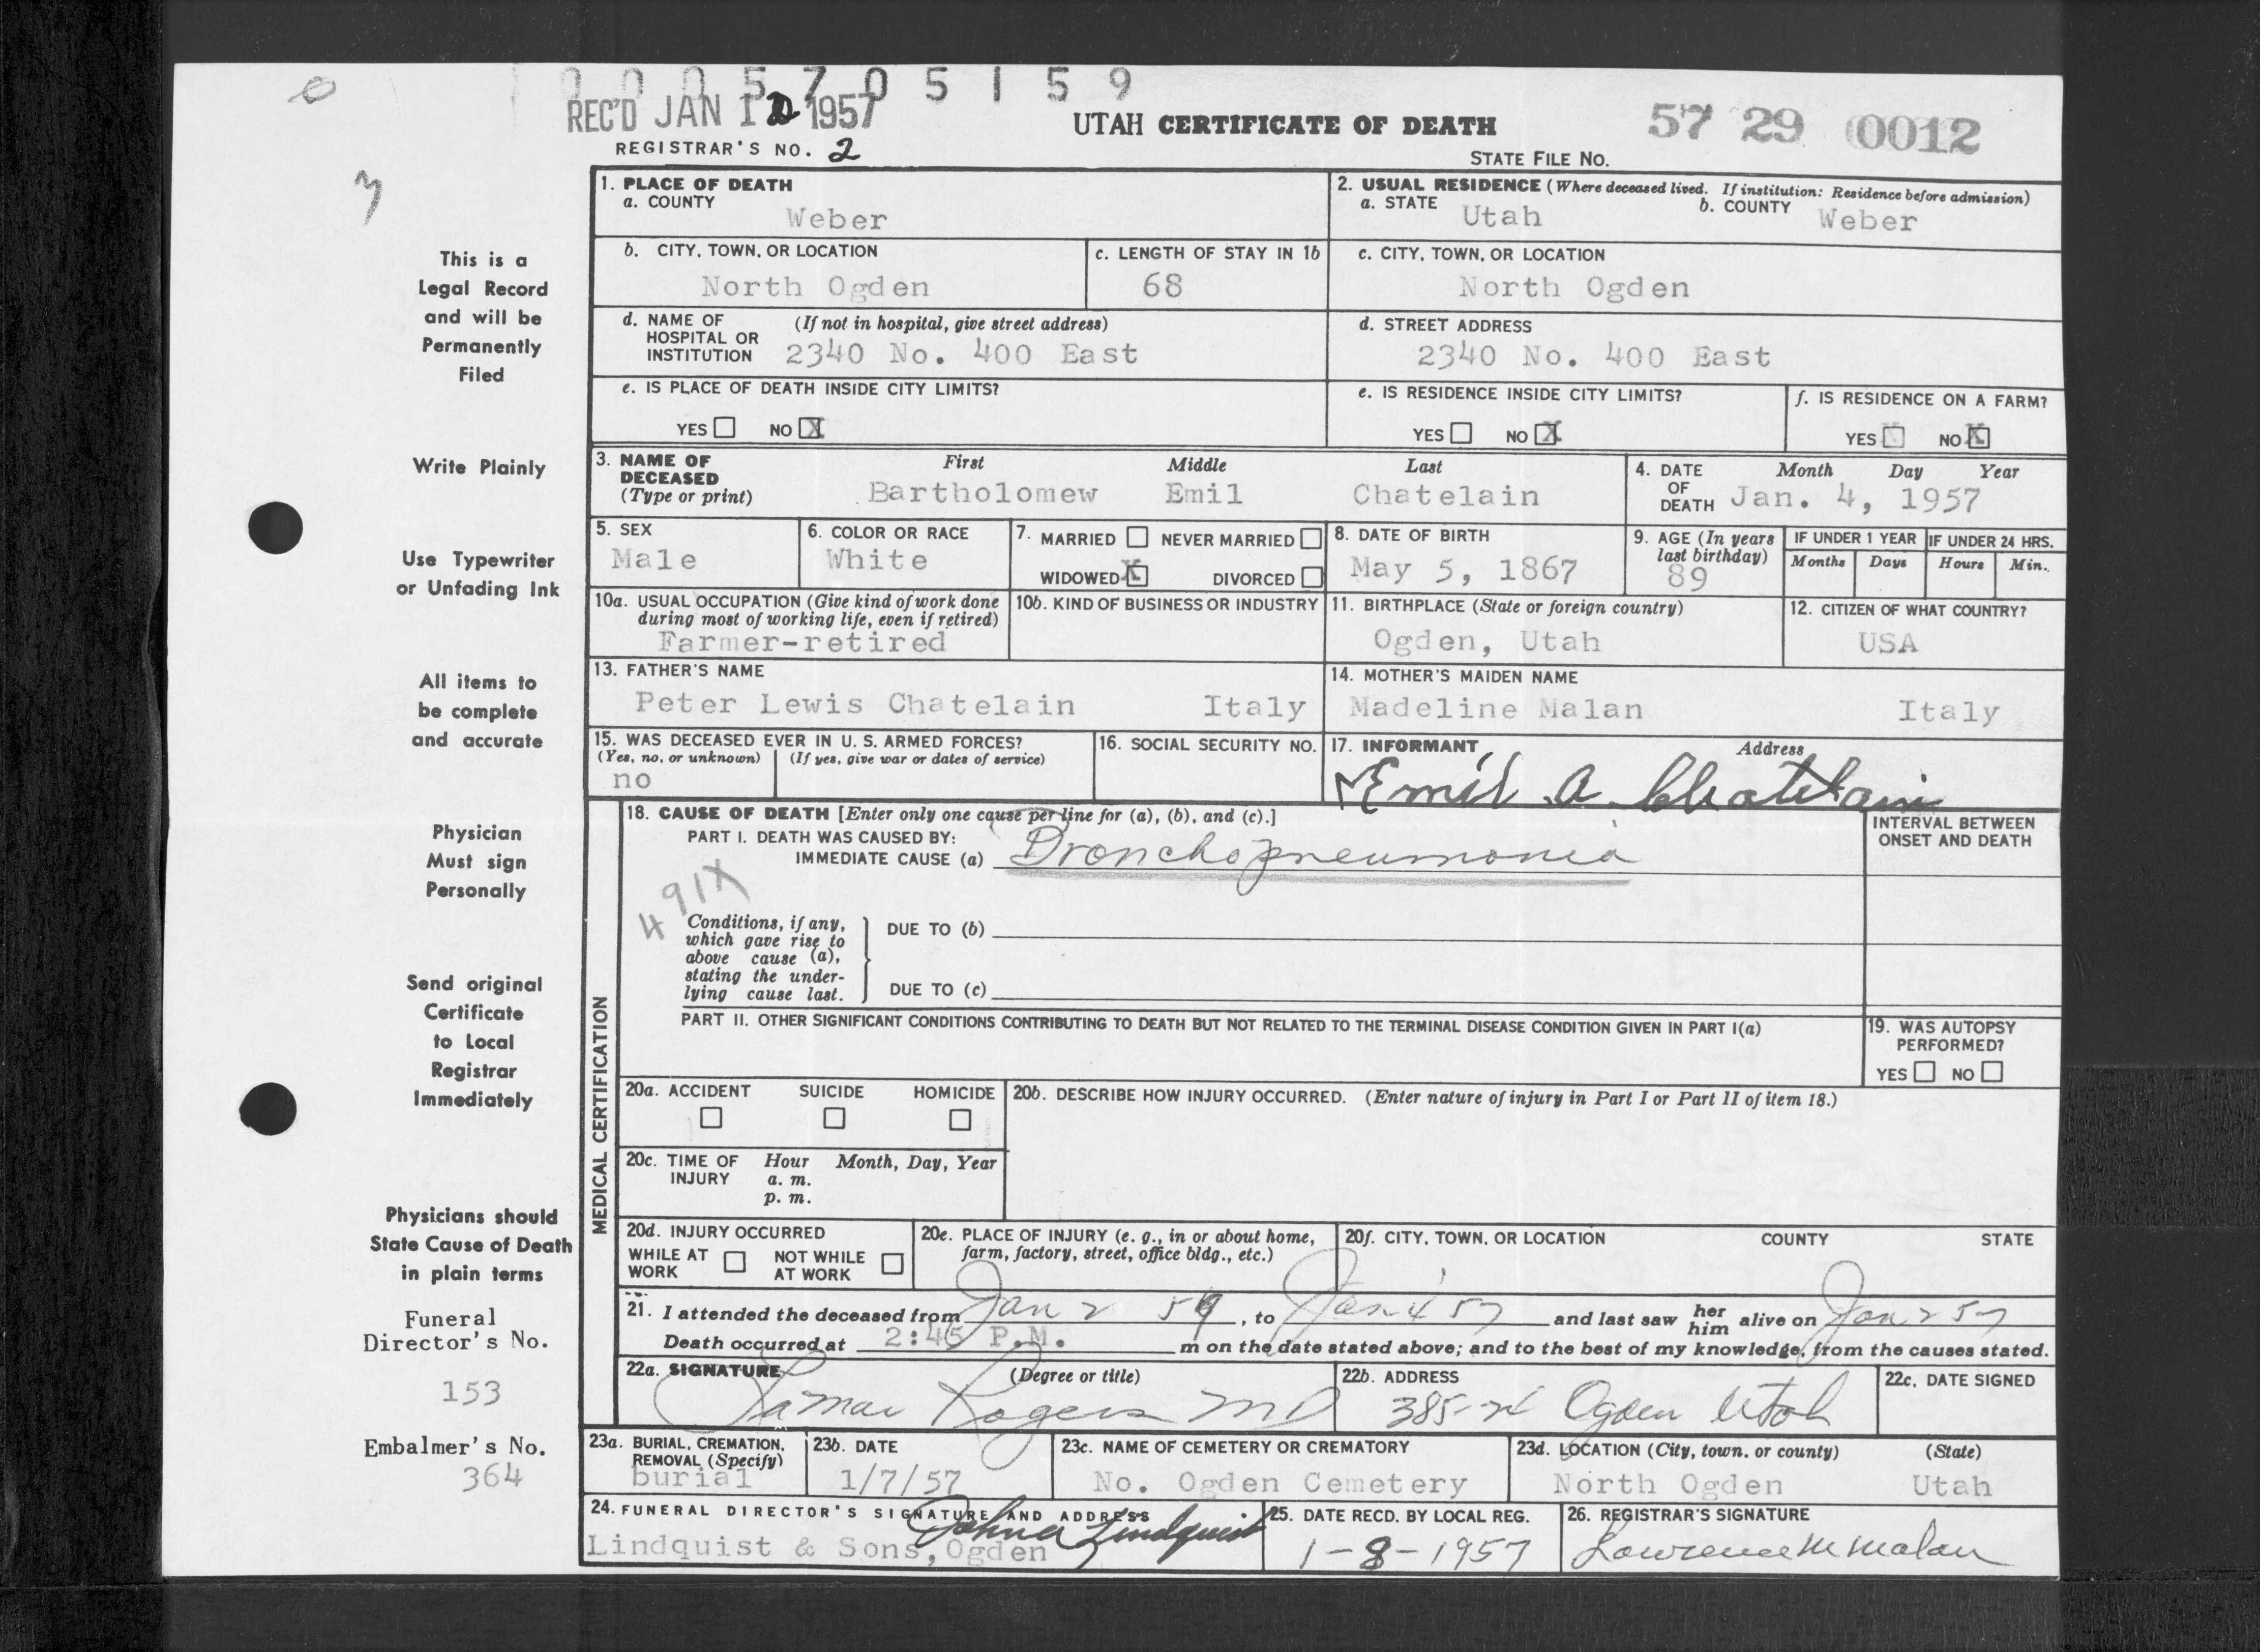 0005705159
REC'D JAN 1 1957
UTAH CERTIFICATE OF DEATH
57 29 0012
REGISTRAR'S NO. 2
STATE FILE NO.
This is a
Legal Record
and will be
Permanently
Filed
Write Plainly
Use Typewriter
or Unfading Ink
All items to
be complete
and accurate
Physician
Must sign
Personally
Send original
Certificate
to Local
Registrar
Immediately
Physicians should
State Cause of Death
in plain terms
Funeral
Director's No.
153
Embalmer's No.
364
1. PLACE OF DEATH
a. COUNTY
Weber
2. USUAL RESIDENCE (Where deceased lived. If institution: Residence before admission)
a. STATE Utah b. COUNTY Weber
b. CITY, TOWN, OR LOCATION
North Ogden
c. LENGTH OF STAY IN 1b
68
c. CITY, TOWN, OR LOCATION
North Ogden
d. NAME OF (If not in hospital, give street address)
HOSPITAL OR
INSTITUTION 2340 No. 400 East
d. STREET ADDRESS
2340 No. 400 East
e. IS PLACE OF DEATH INSIDE CITY LIMITS?
YES NO X
e. IS RESIDENCE INSIDE CITY LIMITS?
YES NO X
f. IS RESIDENCE ON A FARM?
YES NO X
3. NAME OF First Middle Last
DECEASED
(Type or print) Bartholomew Emil Chatelain
4. DATE Month Day Year
OF
DEATH Jan. 4, 1957
5. SEX
Male
6. COLOR OR RACE
White
7. MARRIED NEVER MARRIED
WIDOWED X DIVORCED
8. DATE OF BIRTH
May 5, 1867
9. AGE (In years
last birthday)
89
IF UNDER 1 YEAR
Months Days
IF UNDER 24 HRS.
Hours Min.
10a. USUAL OCCUPATION (Give kind of work done
during most of working life, even if retired)
Farmer-retired
10b. KIND OF BUSINESS OR INDUSTRY
11. BIRTHPLACE (State or foreign country)
Ogden, Utah
12. CITIZEN OF WHAT COUNTRY?
USA
13. FATHER'S NAME
Peter Lewis Chatelain Italy
14. MOTHER'S MAIDEN NAME
Madeline Malan Italy
15. WAS DECEASED EVER IN U. S. ARMED FORCES?
(Yes, no, or unknown) (If yes, give war or dates of service)
no
16. SOCIAL SECURITY NO.
17. INFORMANT Address
Emil A. Chatelain
MEDICAL CERTIFICATION
18. CAUSE OF DEATH [Enter only one cause per line for (a), (b), and (c).]
PART I. DEATH WAS CAUSED BY:
IMMEDIATE CAUSE (a) Bronchopneumonia
INTERVAL BETWEEN
ONSET AND DEATH
491X
Conditions, if any,
which gave rise to
above cause (a),
stating the under-
lying cause last.
DUE TO (b)
DUE TO (c)
PART II. OTHER SIGNIFICANT CONDITIONS CONTRIBUTING TO DEATH BUT NOT RELATED TO THE TERMINAL DISEASE CONDITION GIVEN IN PART I(a)
19. WAS AUTOPSY
PERFORMED?
YES NO
20a. ACCIDENT SUICIDE HOMICIDE
20b. DESCRIBE HOW INJURY OCCURRED. (Enter nature of injury in Part I or Part II of item 18.)
20c. TIME OF Hour Month, Day, Year
INJURY a. m.
p. m.
20d. INJURY OCCURRED
WHILE AT NOT WHILE
WORK AT WORK
20e. PLACE OF INJURY (e. g., in or about home,
farm, factory, street, office bldg., etc.)
20f. CITY, TOWN, OR LOCATION COUNTY STATE
21. I attended the deceased from Jan 2 , to Jan 4 57 and last saw her him alive on Jan 2 57
Death occurred at 2:45 P.M. m on the date stated above; and to the best of my knowledge, from the causes stated.
22a. SIGNATURE (Degree or title)
LaMar Rogers MD
22b. ADDRESS
385-24 Ogden Utah
22c. DATE SIGNED
23a. BURIAL, CREMATION,
REMOVAL (Specify)
burial
23b. DATE
1/7/57
23c. NAME OF CEMETERY OR CREMATORY
No. Ogden Cemetery
23d. LOCATION (City, town, or county) (State)
North Ogden Utah
24. FUNERAL DIRECTOR'S SIGNATURE AND ADDRESS
Lindquist
Lindquist & Sons, Ogden
25. DATE RECD. BY LOCAL REG.
1-8-1957
26. REGISTRAR'S SIGNATURE
Lawrence M Malan